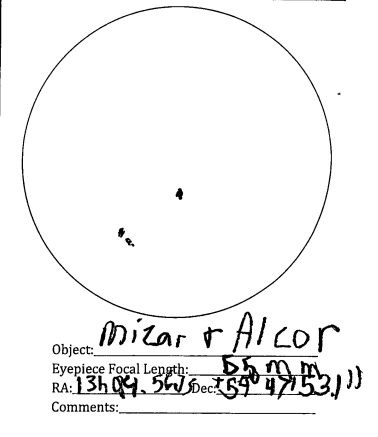 Object: Mizar + Alcor
Eyepiece Focal Length: 55 mm
RA: 13h Dec: +54° 47' 53.1"
Comments: